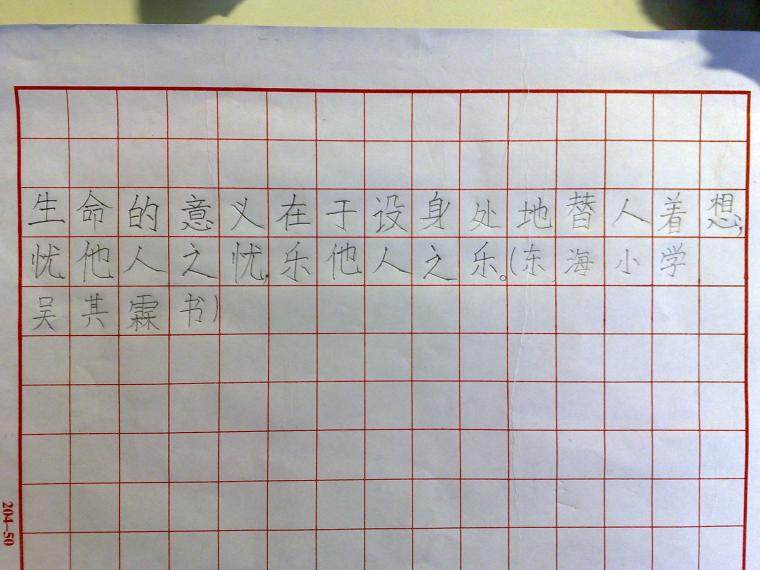 生命的意义在于设身处地替人着想,
忧他人之忧,乐他人之乐。(东海小学
吴其霖书)
204-50